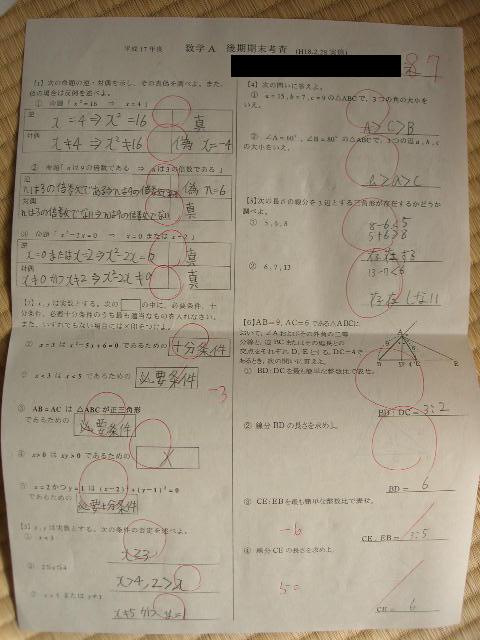 平成17年度 数学A 後期期末考査 (H18.2.28 実施)
87
[1] 次の命題の逆・対偶を示し、その真偽を調べよ。また、
偽の場合は反例を述べよ。
① 命題「x²=16 ⇒ x=4」
逆
x=4⇒x²=16 真
対偶
x≠4⇒x²≠16 偽 x=-4
② 命題「nは9の倍数である ⇒ nは3の倍数である」
逆
nは3の倍数であるならばnは9の倍数 偽 n=6
対偶
nは3の倍数でない⇒nは9の倍数でない 真
③ 命題「x²-2x=0 ⇒ x=0またはx=2」
逆
x=0またはx=2⇒x²-2x=0 真
対偶
x≠0かつx≠2⇒x²-2x≠0 真
[2] x,yは実数とする。次の の中に、必要条件、十
分条件、必要十分条件のうち最も適当なものを入れなさい。
また、いずれでもない場合には×印をつけよ。
① x=3はx²-5x+6=0であるための 十分条件
② x<3はx<5であるための 必要条件
-3
③ AB=ACは△ABCが正三角形
であるための 必要条件
④ x>0はxy>0であるための ×
⑤ x=2かつy=1は(x-2)²+(y-1)²=0
であるための 必要十分条件
[3] x,yは実数とする。次の条件の否定を述べよ。
① x<3
x≧3
② 2≦x≦4
x>4, 2>x
③
[4] 次の問いに答えよ。
① a=15,b=7,c=9の△ABCで、3つの角の大小を
いえ。
A>C>B
② ∠A=60°、∠B=80°の△ABCで、3つの辺a,b,c
の大小をいえ。
b>a>c
[5] 次の長さの線分を3辺とする三角形が存在するかどうか
調べよ。
① 5,6,8
8-6<5
5+6>8
存在する
② 6,7,13
13-7<6
存在しない
[6] AB=9,AC=6である△ABCに
おいて、∠Aおよびその外角の二等
分線と、辺BCまたはその延長との
交点をそれぞれD,Eとする。DC=4で
あるとき、次の問いに答えよ。
① BD:DCを最も簡単な整数比で表せ。
BD:DC=3:2
② 線分BDの長さを求めよ。
BD=6
③ CE:EBを最も簡単な整数比で表せ。
-6
CE:EB=3:5
④ 線分CEの長さを求めよ。
CE=6